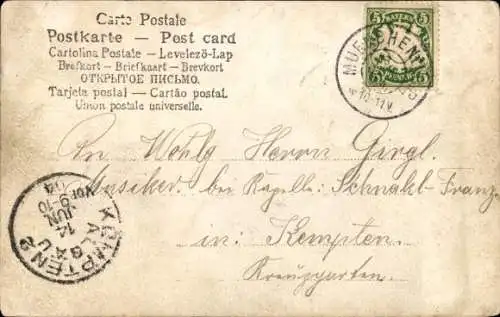 Carte Postale
Postkarte — Post card
Cartolina Postale — Levelező-Lap
Brefkort — Briefkaart — Brevkort
ОТКРЫТОЕ ПИСЬМО.
Tarjeta postal — Cartão postal.
Union postale universelle.
5 BAYERN 5
MUENCHEN
10-11V.
An Wohlg Herrn Girgl.
Musiker. bei Kapelle: Schnakl-Franz.
in: Kempten.
Kreuzgarten.
KEMPTEN 2
ALGÄU
14
JUN
Vor. 9-10
04